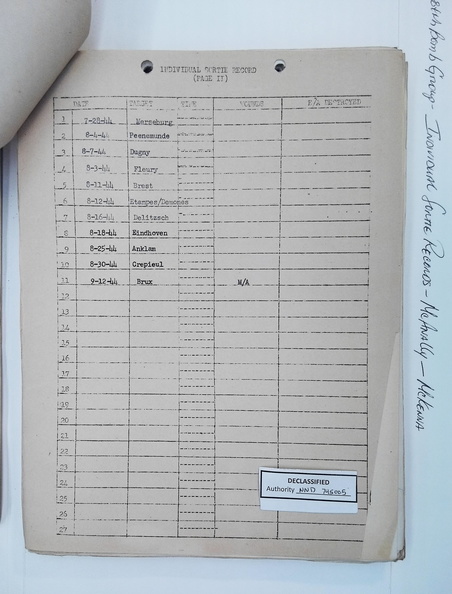 INDIVIDUAL SORTIE RECORD
(PAGE II)
DATE TARGET TIME WOUNDS E/A DESTROYED
1 7-28-44 Merseburg
2 8-4-44 Peenemunde
3 8-7-44 Dugny
4 8-3-44 Fleury
5 8-11-44 Brest
6 8-12-44 Etampes/
7 8-16-44 Delitzsch
8 8-18-44 Eindhoven
9 8-25-44 Anklam
10 8-30-44 Crepieul
11 9-12-44 Brux M/A
12
13
14
15
16
17
18
19
20
21
22
23
24
25
26
27
DECLASSIFIED
Authority NND 745005
Bomb Group - Individual Sortie Records - McAnally - McKenna